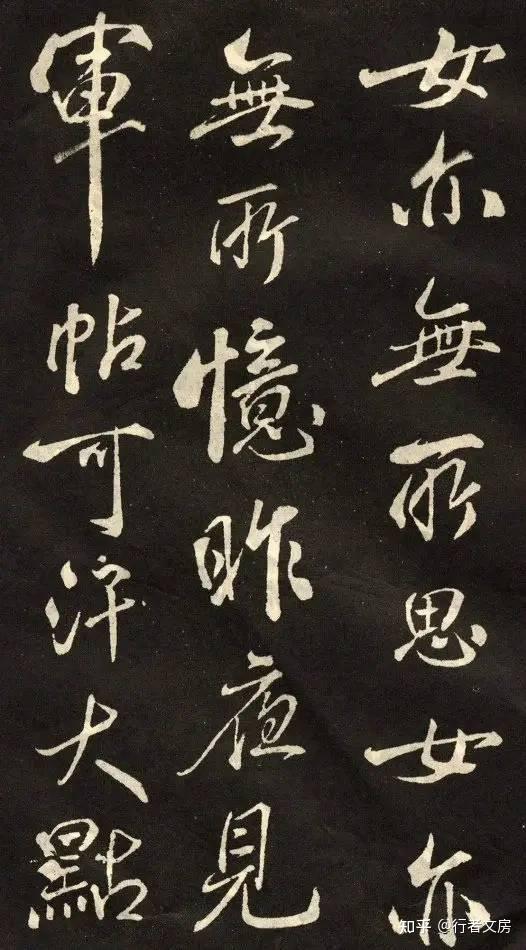 女亦無所思女亦
無所憶昨夜見
軍帖可汗大點
知乎 @行者文房